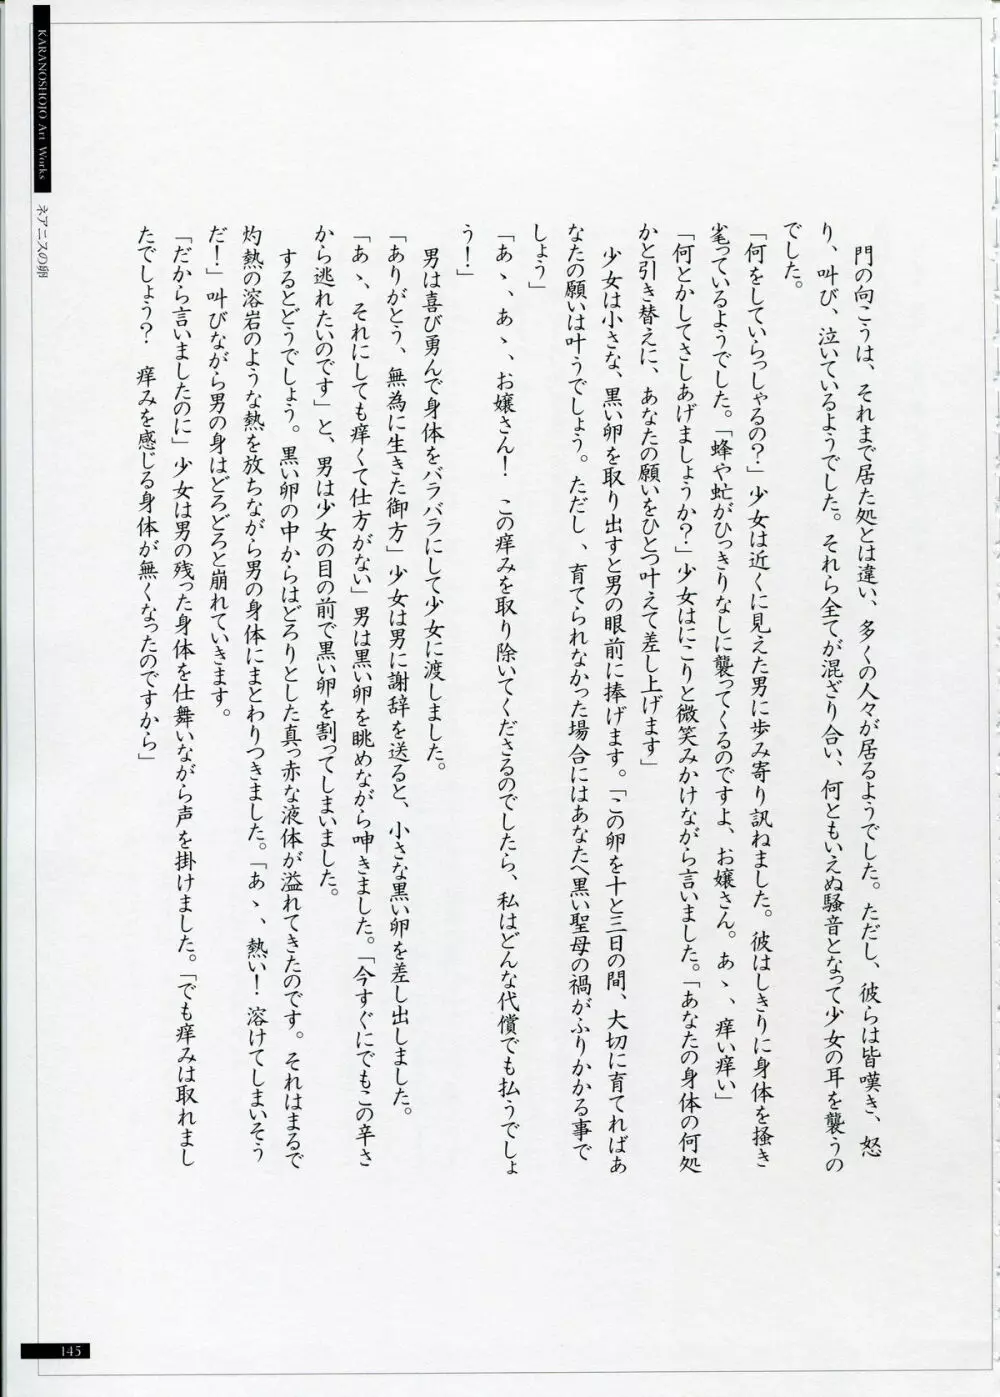 KARANOSHOJO Art Works
ネアニスの卵
門の向こうは、それまで居た処とは違い、多くの人々が居るようでした。ただし、彼らは皆嘆き、怒
り、叫び、泣いているようでした。それら全てが混ざり合い、何ともいえぬ騒音となって少女の耳を襲うの
でした。
「何をしていらっしゃるの?」少女は近くに見えた男に歩み寄り訊ねました。彼はしきりに身体を掻き
毟っているようでした。「蜂や虻がひっきりなしに襲ってくるのですよ、お嬢さん。あゝ、痒い痒い」
「何とかしてさしあげましょうか?」少女はにこりと微笑みかけながら言いました。「あなたの身体の何処
かと引き替えに、あなたの願いをひとつ叶えて差し上げます」
少女は小さな、黒い卵を取り出すと男の眼前に捧げます。「この卵を十と三日の間、大切に育てればあ
なたの願いは叶うでしょう。ただし、育てられなかった場合にはあなたへ黒い聖母の禍がふりかかる事で
しょう」
「あゝ、あゝ、お嬢さん! この痒みを取り除いてくださるのでしたら、私はどんな代償でも払うでしょ
う!」
男は喜び勇んで身体をバラバラにして少女に渡しました。
「ありがとう、無為に生きた御方」少女は男に謝辞を送ると、小さな黒い卵を差し出しました。
「あゝ、それにしても痒くて仕方がない」男は黒い卵を眺めながら呻きました。「今すぐにでもこの辛さ
から逃れたいのです」と、男は少女の目の前で黒い卵を割ってしまいました。
するとどうでしょう。黒い卵の中からはどろりとした真っ赤な液体が溢れてきたのです。それはまるで
灼熱の溶岩のような熱を放ちながら男の身体にまとわりつきました。「あゝ、熱い! 溶けてしまいそう
だ!」叫びながら男の身はどろどろと崩れていきます。
「だから言いましたのに」少女は男の残った身体を仕舞いながら声を掛けました。「でも痒みは取れまし
たでしょう? 痒みを感じる身体が無くなったのですから」
145